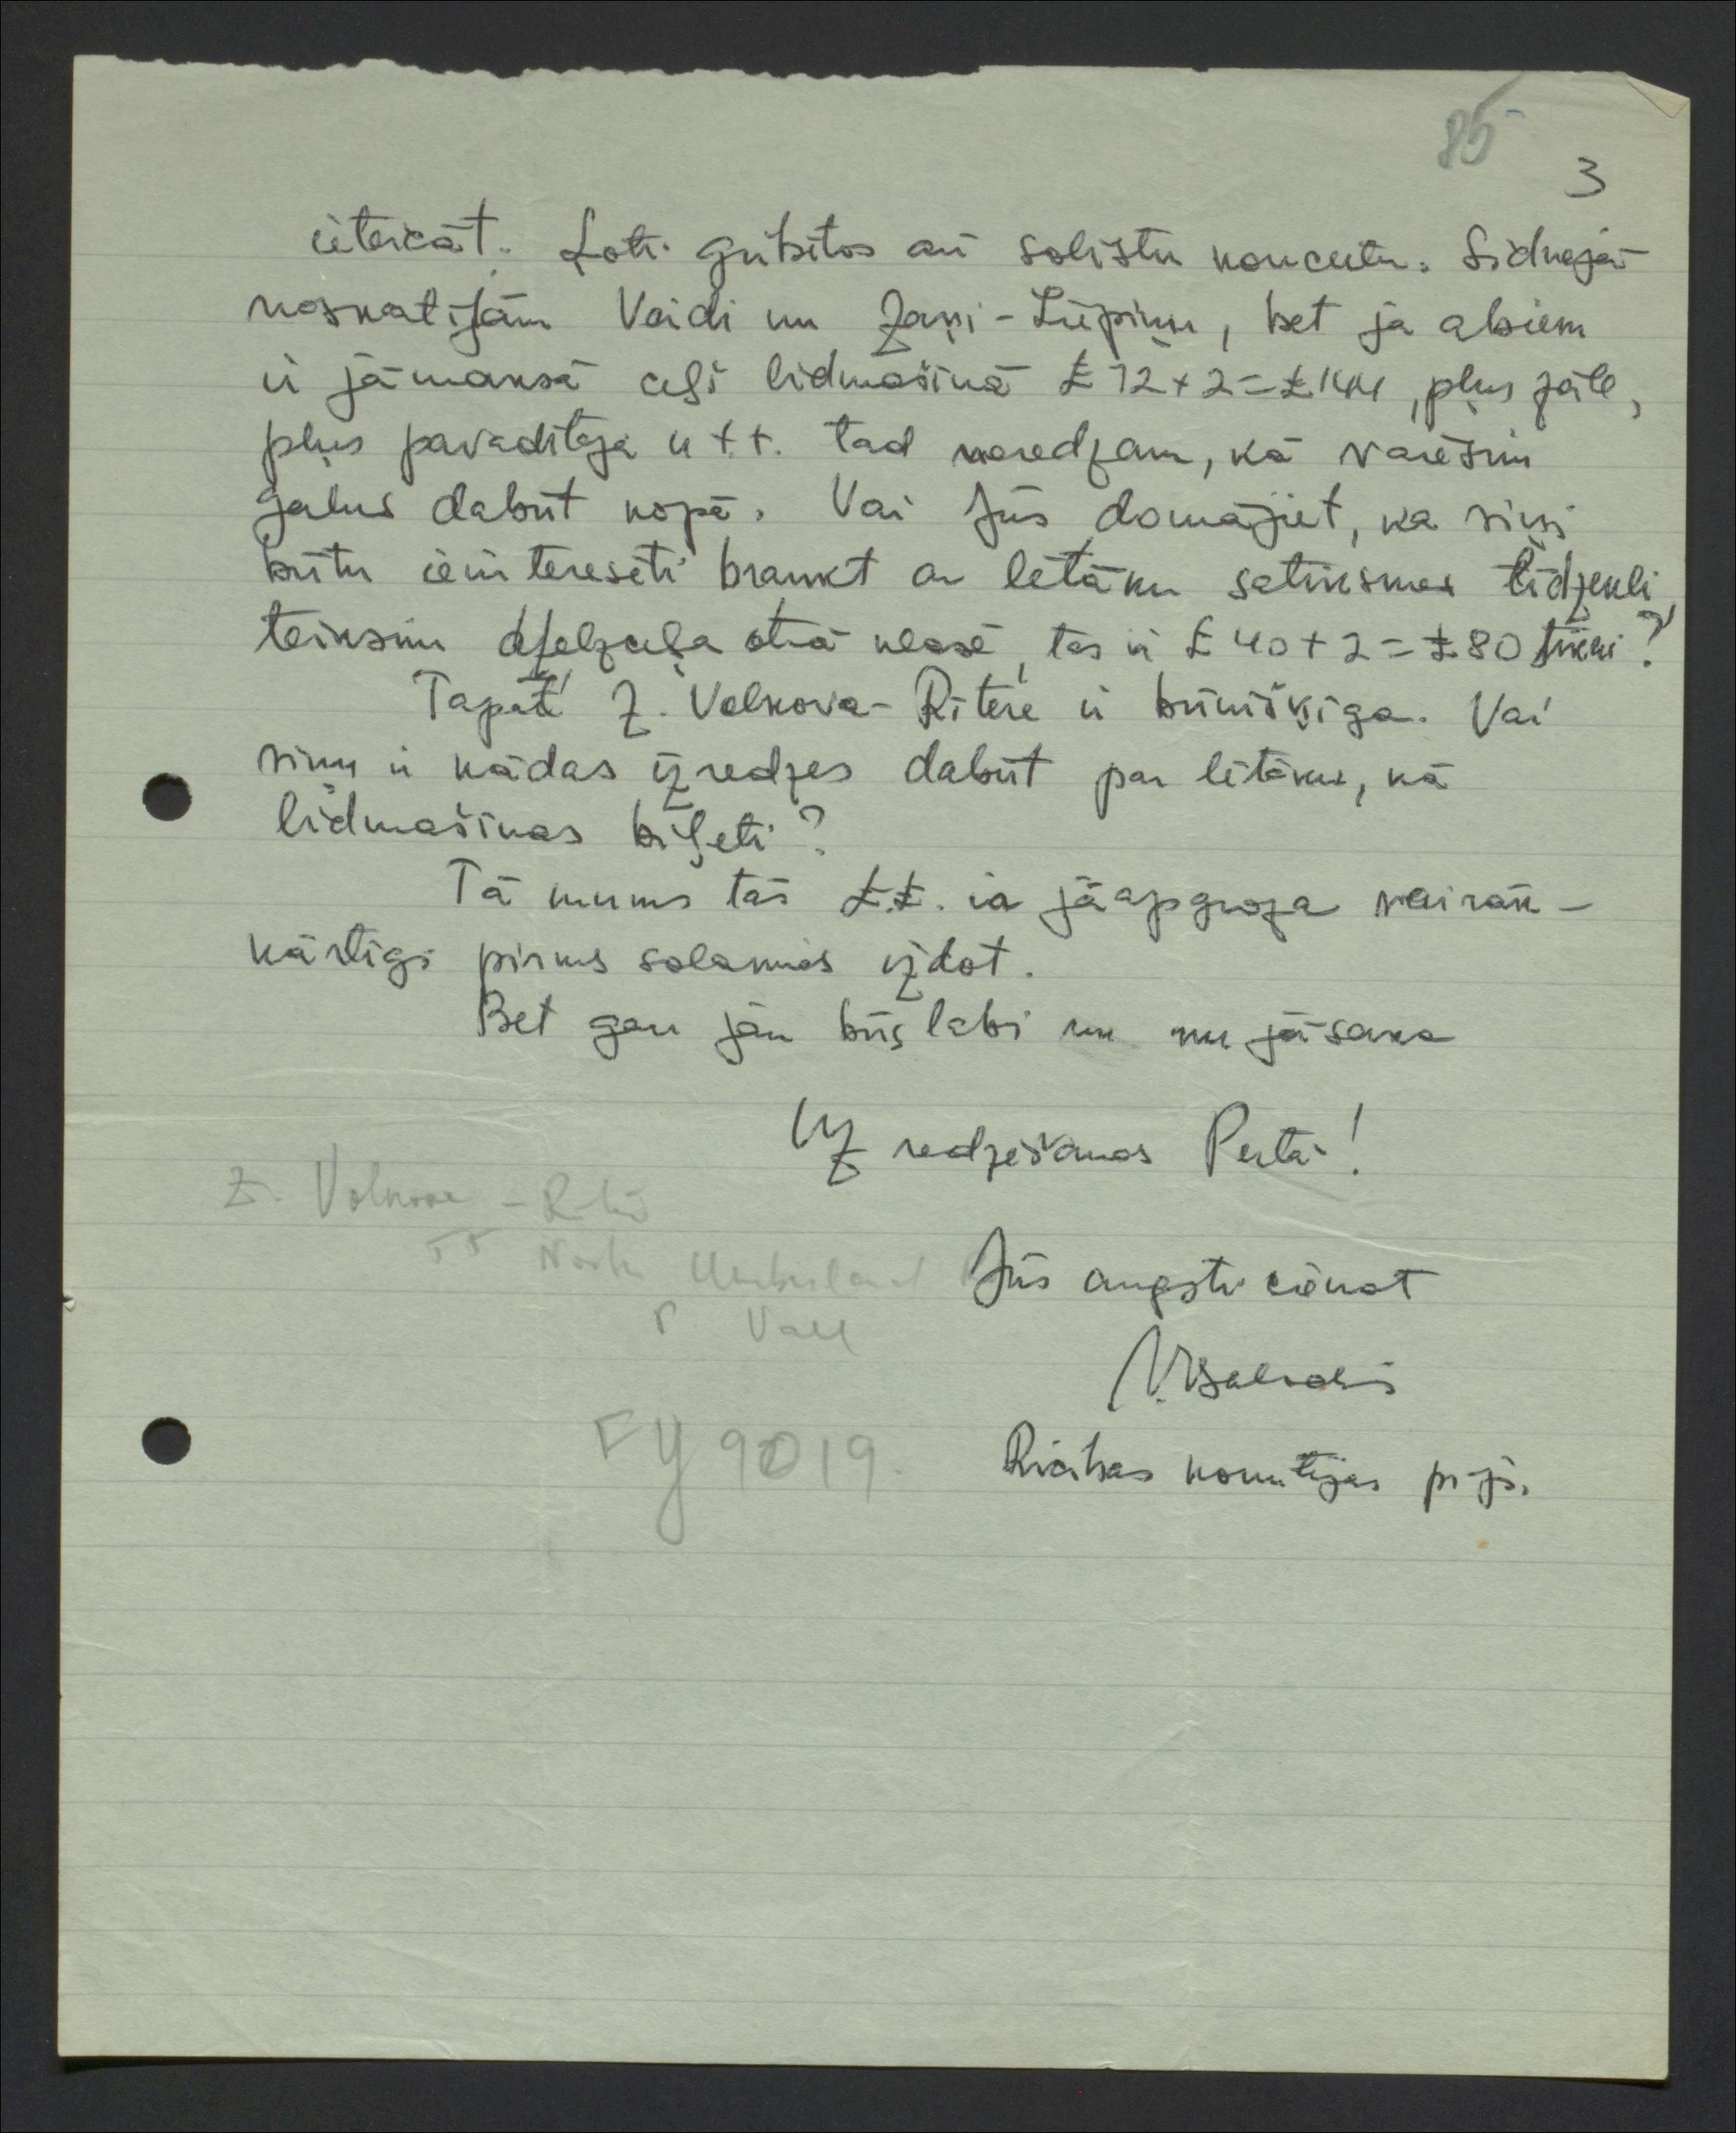 85
3
ieteicāt. Ļoti gribētos arī solistu koncertu. Sidnejā
noskatījām Veidi un Zaņi-Liepiņu, bet ja abiem
ir jāmaksā ceļš lidmašīnā £ 72 + 2 = £ 144, plus zāle,
plus pavadītāja u t.t. tad neredzam, kā varēsim
galus dabūt kopā. Vai Jūs domājiet, ka viņi
būtu ieinteresēti braukt ar lētāku satiksmes līdzekli
teiksim dzelzceļa otrā klasē, tas ir £ 40 + 2 = £ 80 tikai?
Tapat Z. Volkova-Ritere ir brīnišķīga. Vai
viņu ir kādas izredzes dabūt par lētāku, kā
lidmašīnas biļeti?
Tā mums tās £.£. ir jāapgroza vairāk-
kārtīgi pirms solamies izdot.
Bet gan jau būs labi un nu jāsaka
Uz redzēšanos Pertā!
Z. Volkova - Ritere
55 North Umberland
P. Vall
FY 9019.
Jūs augsti cienot
Rīcības komitejas pr-js.